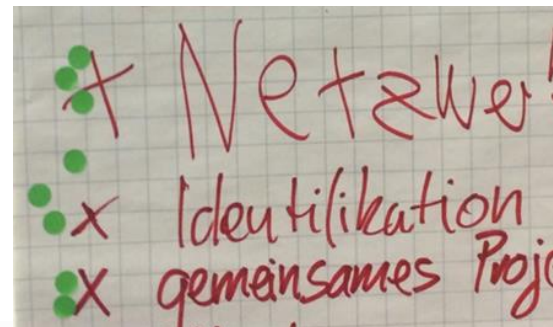 + Netzwe
x Identifikation
x gemeinsames Proj